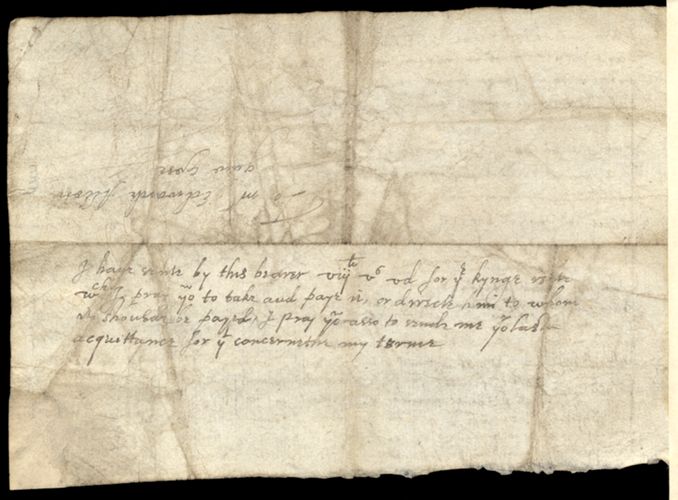 To mr Edwarde
I have sente by this bearer viijli vs vd for ye kyngs rente
wch I pray yo to take and paye it, or directe him to whom
it shoulde be payed, I pray yo also to sende me yor laste
acquittance for yt concerneth my terme